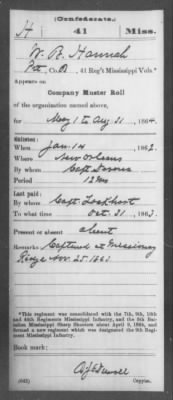 (Confederate.)
H 41 Miss.
W. R. Hannah
Pvt, Co. , 41 Reg't Mississippi Vols.*
Appears on
Company Muster Roll
of the organization named above,
for May 1 to Aug 31, 1864.
Enlisted:
When Jan. 14, 1862.
Where New Orleans
By whom Capt.
Period 12 Mos
Last paid:
By whom Capt. Lockhart
To what time Oct. 31, 1863.
Present or absent absent
Remarks: Captured at Missionary
Ridge Nov. 25. 1863
*This regiment was consolidated with the 7th, 9th, 10th
and 44th Regiments Mississippi Infantry, and the 9th Bat-
talion Mississippi Sharp Shooters about April 9, 1865, and
formed a new regiment which was designated the 9th Regi-
ment Mississippi Infantry.
Book mark:
(642) Copyist.